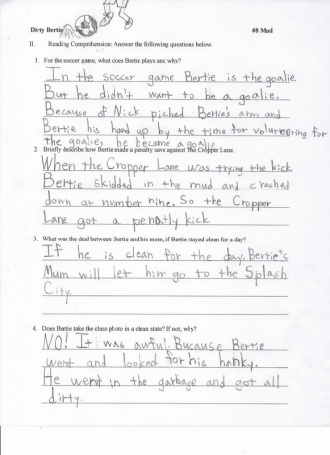 Dirty Bertie #8 Mud
II. Reading Comprehension: Answer the following questions below.
1. For the soccer game, what does Bertie plays and why?
In the soccer game Bertie is the goalie.
But he didn't want to be a goalie.
Because of Nick piched Bertie's arm and
Bertie his hand up by the time for voluteering for
the goalie, he became a goalie
2. Briefly describe how Bertie made a penalty save against The Cropper Lane.
When the Cropper Lane was trying the kick
Bertie skidded in the mud and crashed
down at number nine. So the Cropper
Lane got a penatly kick
3. What was the deal between Bertie and his mom, if Bertie stayed clean for a day?
If he is clean for the day. Bertie's
Mum will let him go to the Splash
City.
4. Does Bertie take the class photo in a clean state? If not, why?
NO! It was awful. Bucause Bertie
went and looked for his hanky.
He went in the garbage and got all
dirty.